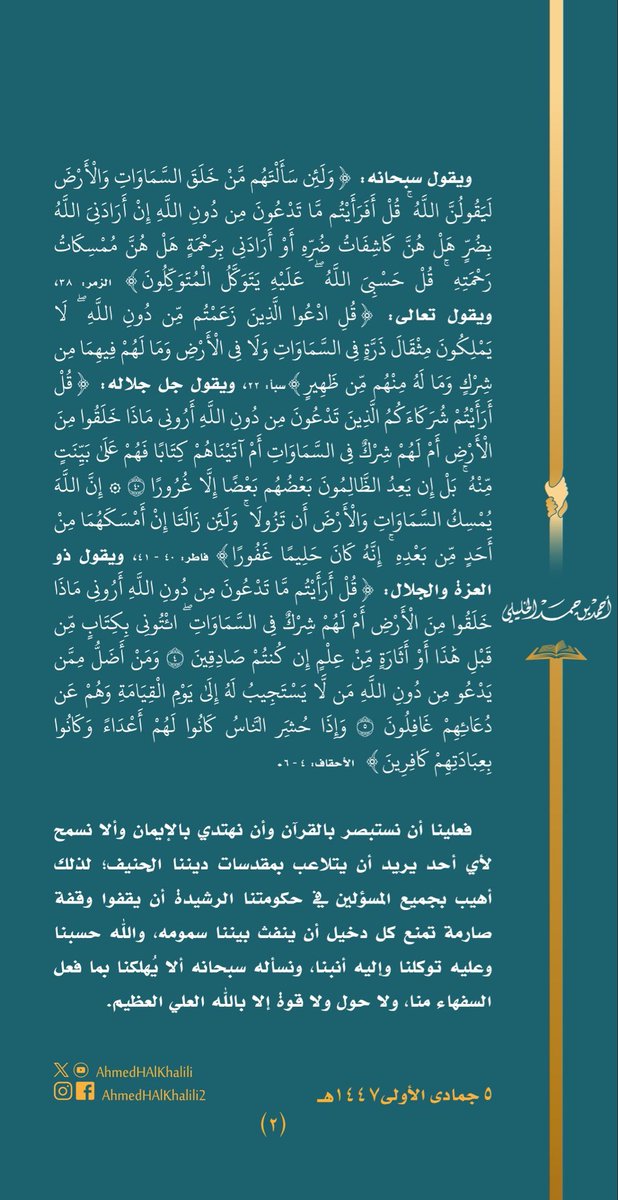 ويقول سبحانه: ﴿ وَلَئِن سَأَلْتَهُم مَّنْ خَلَقَ السَّمَاوَاتِ وَالْأَرْضَ
لَيَقُولُنَّ اللَّهُ ۚ قُلْ أَفَرَأَيْتُم مَّا تَدْعُونَ مِن دُونِ اللَّهِ إِنْ أَرَادَنِيَ اللَّهُ
بِضُرٍّ هَلْ هُنَّ كَاشِفَاتُ ضُرِّهِ أَوْ أَرَادَنِي بِرَحْمَةٍ هَلْ هُنَّ مُمْسِكَاتُ
رَحْمَتِهِ ۚ قُلْ حَسْبِيَ اللَّهُ ۖ عَلَيْهِ يَتَوَكَّلُ الْمُتَوَكِّلُونَ﴾ الزمر: ٣٨،
ويقول تعالى: ﴿ قُلِ ادْعُوا الَّذِينَ زَعَمْتُم مِّن دُونِ اللَّهِ ۖ لَا
يَمْلِكُونَ مِثْقَالَ ذَرَّةٍ فِي السَّمَاوَاتِ وَلَا فِي الْأَرْضِ وَمَا لَهُمْ فِيهِمَا مِن
شِرْكٍ وَمَا لَهُ مِنْهُم مِّن ظَهِيرٍ﴾ سبأ: ٢٢، ويقول جل جلاله: ﴿ قُلْ
أَرَأَيْتُمْ شُرَكَاءَكُمُ الَّذِينَ تَدْعُونَ مِن دُونِ اللَّهِ أَرُونِي مَاذَا خَلَقُوا مِنَ
الْأَرْضِ أَمْ لَهُمْ شِرْكٌ فِي السَّمَاوَاتِ أَمْ آتَيْنَاهُمْ كِتَابًا فَهُمْ عَلَىٰ بَيِّنَتٍ
مِّنْهُ ۚ بَلْ إِن يَعِدُ الظَّالِمُونَ بَعْضُهُم بَعْضًا إِلَّا غُرُورًا ۝٤٠ ۞ إِنَّ اللَّهَ
يُمْسِكُ السَّمَاوَاتِ وَالْأَرْضَ أَن تَزُولَا ۚ وَلَئِن زَالَتَا إِنْ أَمْسَكَهُمَا مِنْ
أَحَدٍ مِّن بَعْدِهِ ۚ إِنَّهُ كَانَ حَلِيمًا غَفُورًا﴾ فاطر: ٤٠ - ٤١، ويقول ذو
العزة والجلال: ﴿ قُلْ أَرَأَيْتُم مَّا تَدْعُونَ مِن دُونِ اللَّهِ أَرُونِي مَاذَا
خَلَقُوا مِنَ الْأَرْضِ أَمْ لَهُمْ شِرْكٌ فِي السَّمَاوَاتِ ۖ ائْتُونِي بِكِتَابٍ مِّن
قَبْلِ هَٰذَا أَوْ أَثَارَةٍ مِّنْ عِلْمٍ إِن كُنتُمْ صَادِقِينَ ۝٤ وَمَنْ أَضَلُّ مِمَّن
يَدْعُو مِن دُونِ اللَّهِ مَن لَّا يَسْتَجِيبُ لَهُ إِلَىٰ يَوْمِ الْقِيَامَةِ وَهُمْ عَن
دُعَائِهِمْ غَافِلُونَ ۝٥ وَإِذَا حُشِرَ النَّاسُ كَانُوا لَهُمْ أَعْدَاءً وَكَانُوا
بِعِبَادَتِهِمْ كَافِرِينَ﴾ الأحقاف: ٤ - ٦.
فعلينا أن نستبصر بالقرآن وأن نهتدي بالإيمان وألا نسمح
لأي أحد يريد أن يتلاعب بمقدسات ديننا الحنيف؛ لذلك
أهيب بجميع المسؤلين في حكومتنا الرشيدة أن يقفوا وقفة
صارمة تمنع كل دخيل أن ينفث بيننا سمومه، والله حسبنا
وعليه توكلنا وإليه أنبنا، ونسأله سبحانه ألا يُهلكنا بما فعل
السفهاء منا، ولا حول ولا قوة إلا بالله العلي العظيم.
أحمد بن حمد الخليلي
٥ جمادى الأولى ١٤٤٧هـ
AhmedHAlKhalili
AhmedHAlKhalili2
(٢)